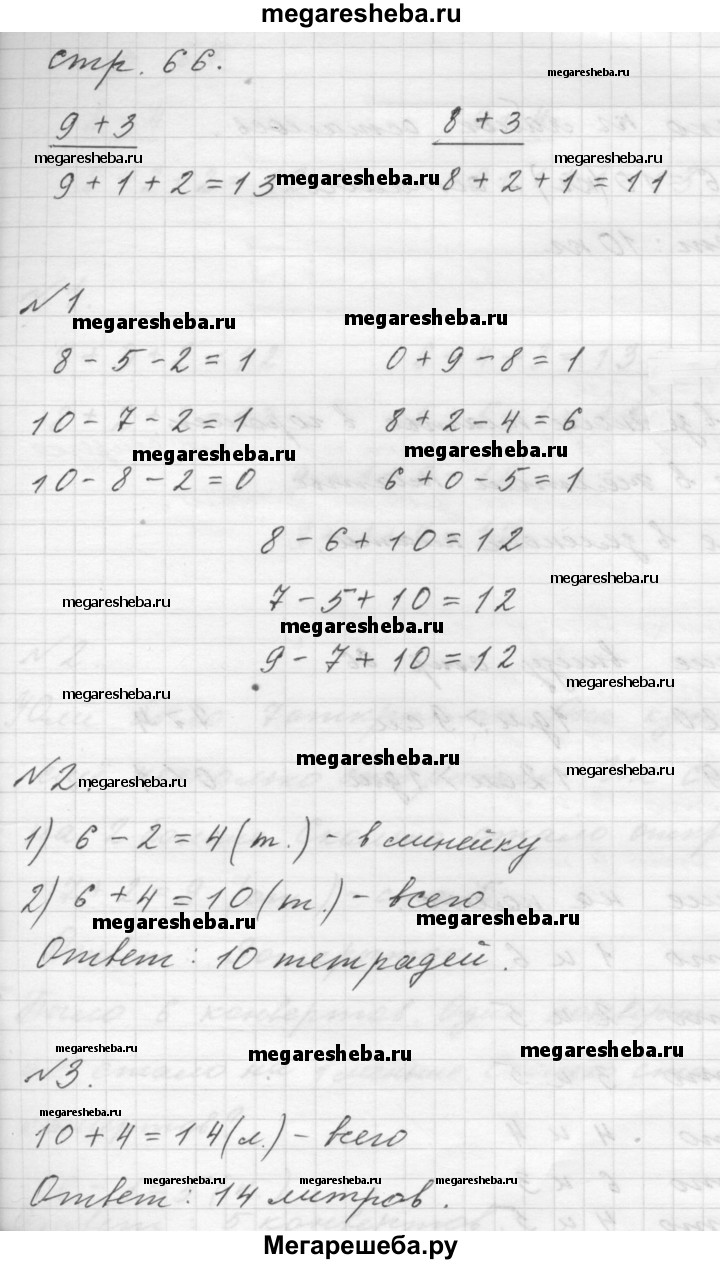 megaresheba.ru
стр. 66.
megaresheba.ru
9 + 3 8 + 3
megaresheba.ru megaresheba.ru
9 + 1 + 2 = 13 megaresheba.ru 8 + 2 + 1 = 11
№1
megaresheba.ru megaresheba.ru
8 - 5 - 2 = 1 0 + 9 - 8 = 1
10 - 7 - 2 = 1 8 + 2 - 4 = 6
megaresheba.ru megaresheba.ru
10 - 8 - 2 = 0 6 + 0 - 5 = 1
8 - 6 + 10 = 12
megaresheba.ru
megaresheba.ru 7 - 5 + 10 = 12
megaresheba.ru
9 - 7 + 10 = 12
megaresheba.ru megaresheba.ru
megaresheba.ru
№2. megaresheba.ru megaresheba.ru
1) 6 - 2 = 4 (т.) - в линейку
2) 6 + 4 = 10 (т.) - всего
megaresheba.ru megaresheba.ru
Ответ: 10 тетрадей.
megaresheba.ru megaresheba.ru megaresheba.ru
№3.
megaresheba.ru
10 + 4 = 14 (л.) - всего
megaresheba.ru megaresheba.ru megaresheba.ru
Ответ: 14 литров.
Мегарешеба.ру